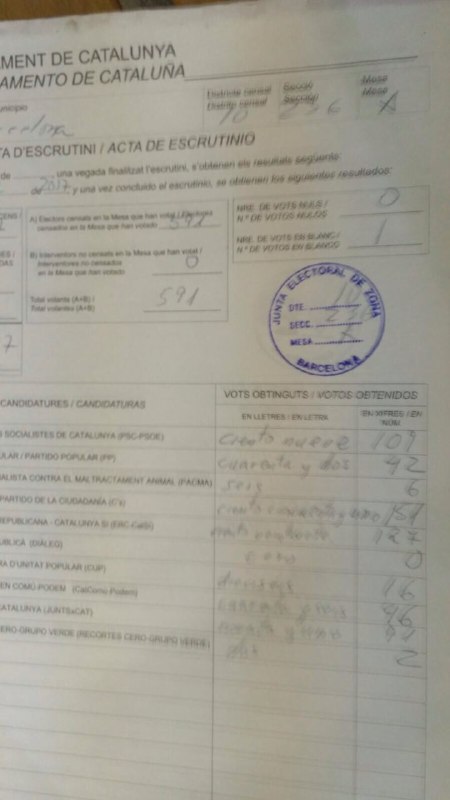 AMENT DE CATALUNYA
AMENTO DE CATALUÑA
unicipio
Districte censal
Distrito censal
Secció
Mesa
Mesa
10
A
A D'ESCRUTINI / ACTA DE ESCRUTINIO
de , una vegada finalitzat l'escrutini, s'obtenen els resultats següents:
de 2017 y una vez concluido el escrutinio, se obtienen los siguientes resultados:
A) Electors censats en la Mesa que han votat /
censados en la Mesa que han votado
B) Interventors no censats en la Mesa que han votat /
Interventores no censados
en la Mesa que han votado
0
Total votants (A+B) /
Total votantes (A+B)
591
NRE. DE VOTS NULS /
N.º DE VOTOS NULOS
0
NRE. DE VOTS EN BLANC /
N.º DE VOTOS EN BLANCO
1
JUNTA ELECTORAL DE ZONA
DTE.
SECC.
MESA
BARCELONA
CANDIDATURES / CANDIDATURAS
VOTS OBTINGUTS / VOTOS OBTENIDOS
EN LLETRES / EN LETRA
EN XIFRES / EN NÚM.
S SOCIALISTES DE CATALUNYA (PSC-PSOE) ciento nueve 109
ULAR / PARTIDO POPULAR (PP) cuarenta y dos 42
ALISTA CONTRA EL MALTRACTAMENT ANIMAL (PACMA) seis 6
PARTIDO DE LA CIUDADANÍA (C's) 151
REPUBLICANA - CATALUNYA SÍ (ERC-CatSí) 127
UBLICA (DIÀLEG) cero 0
RA D'UNITAT POPULAR (CUP) 16
EN COMÚ-PODEM (CatComú-Podem) 46
CATALUNYA (JUNTSxCAT)
ERO-GRUPO VERDE (RECORTES CERO-GRUPO VERDE) dos 2